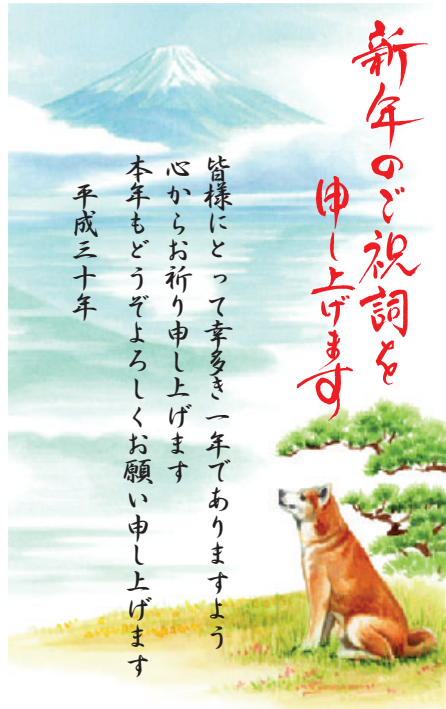 新年のご祝詞を
申し上げます
皆様にとって幸多き一年でありますよう
心からお祈り申し上げます
本年もどうぞよろしくお願い申し上げます
平成三十年